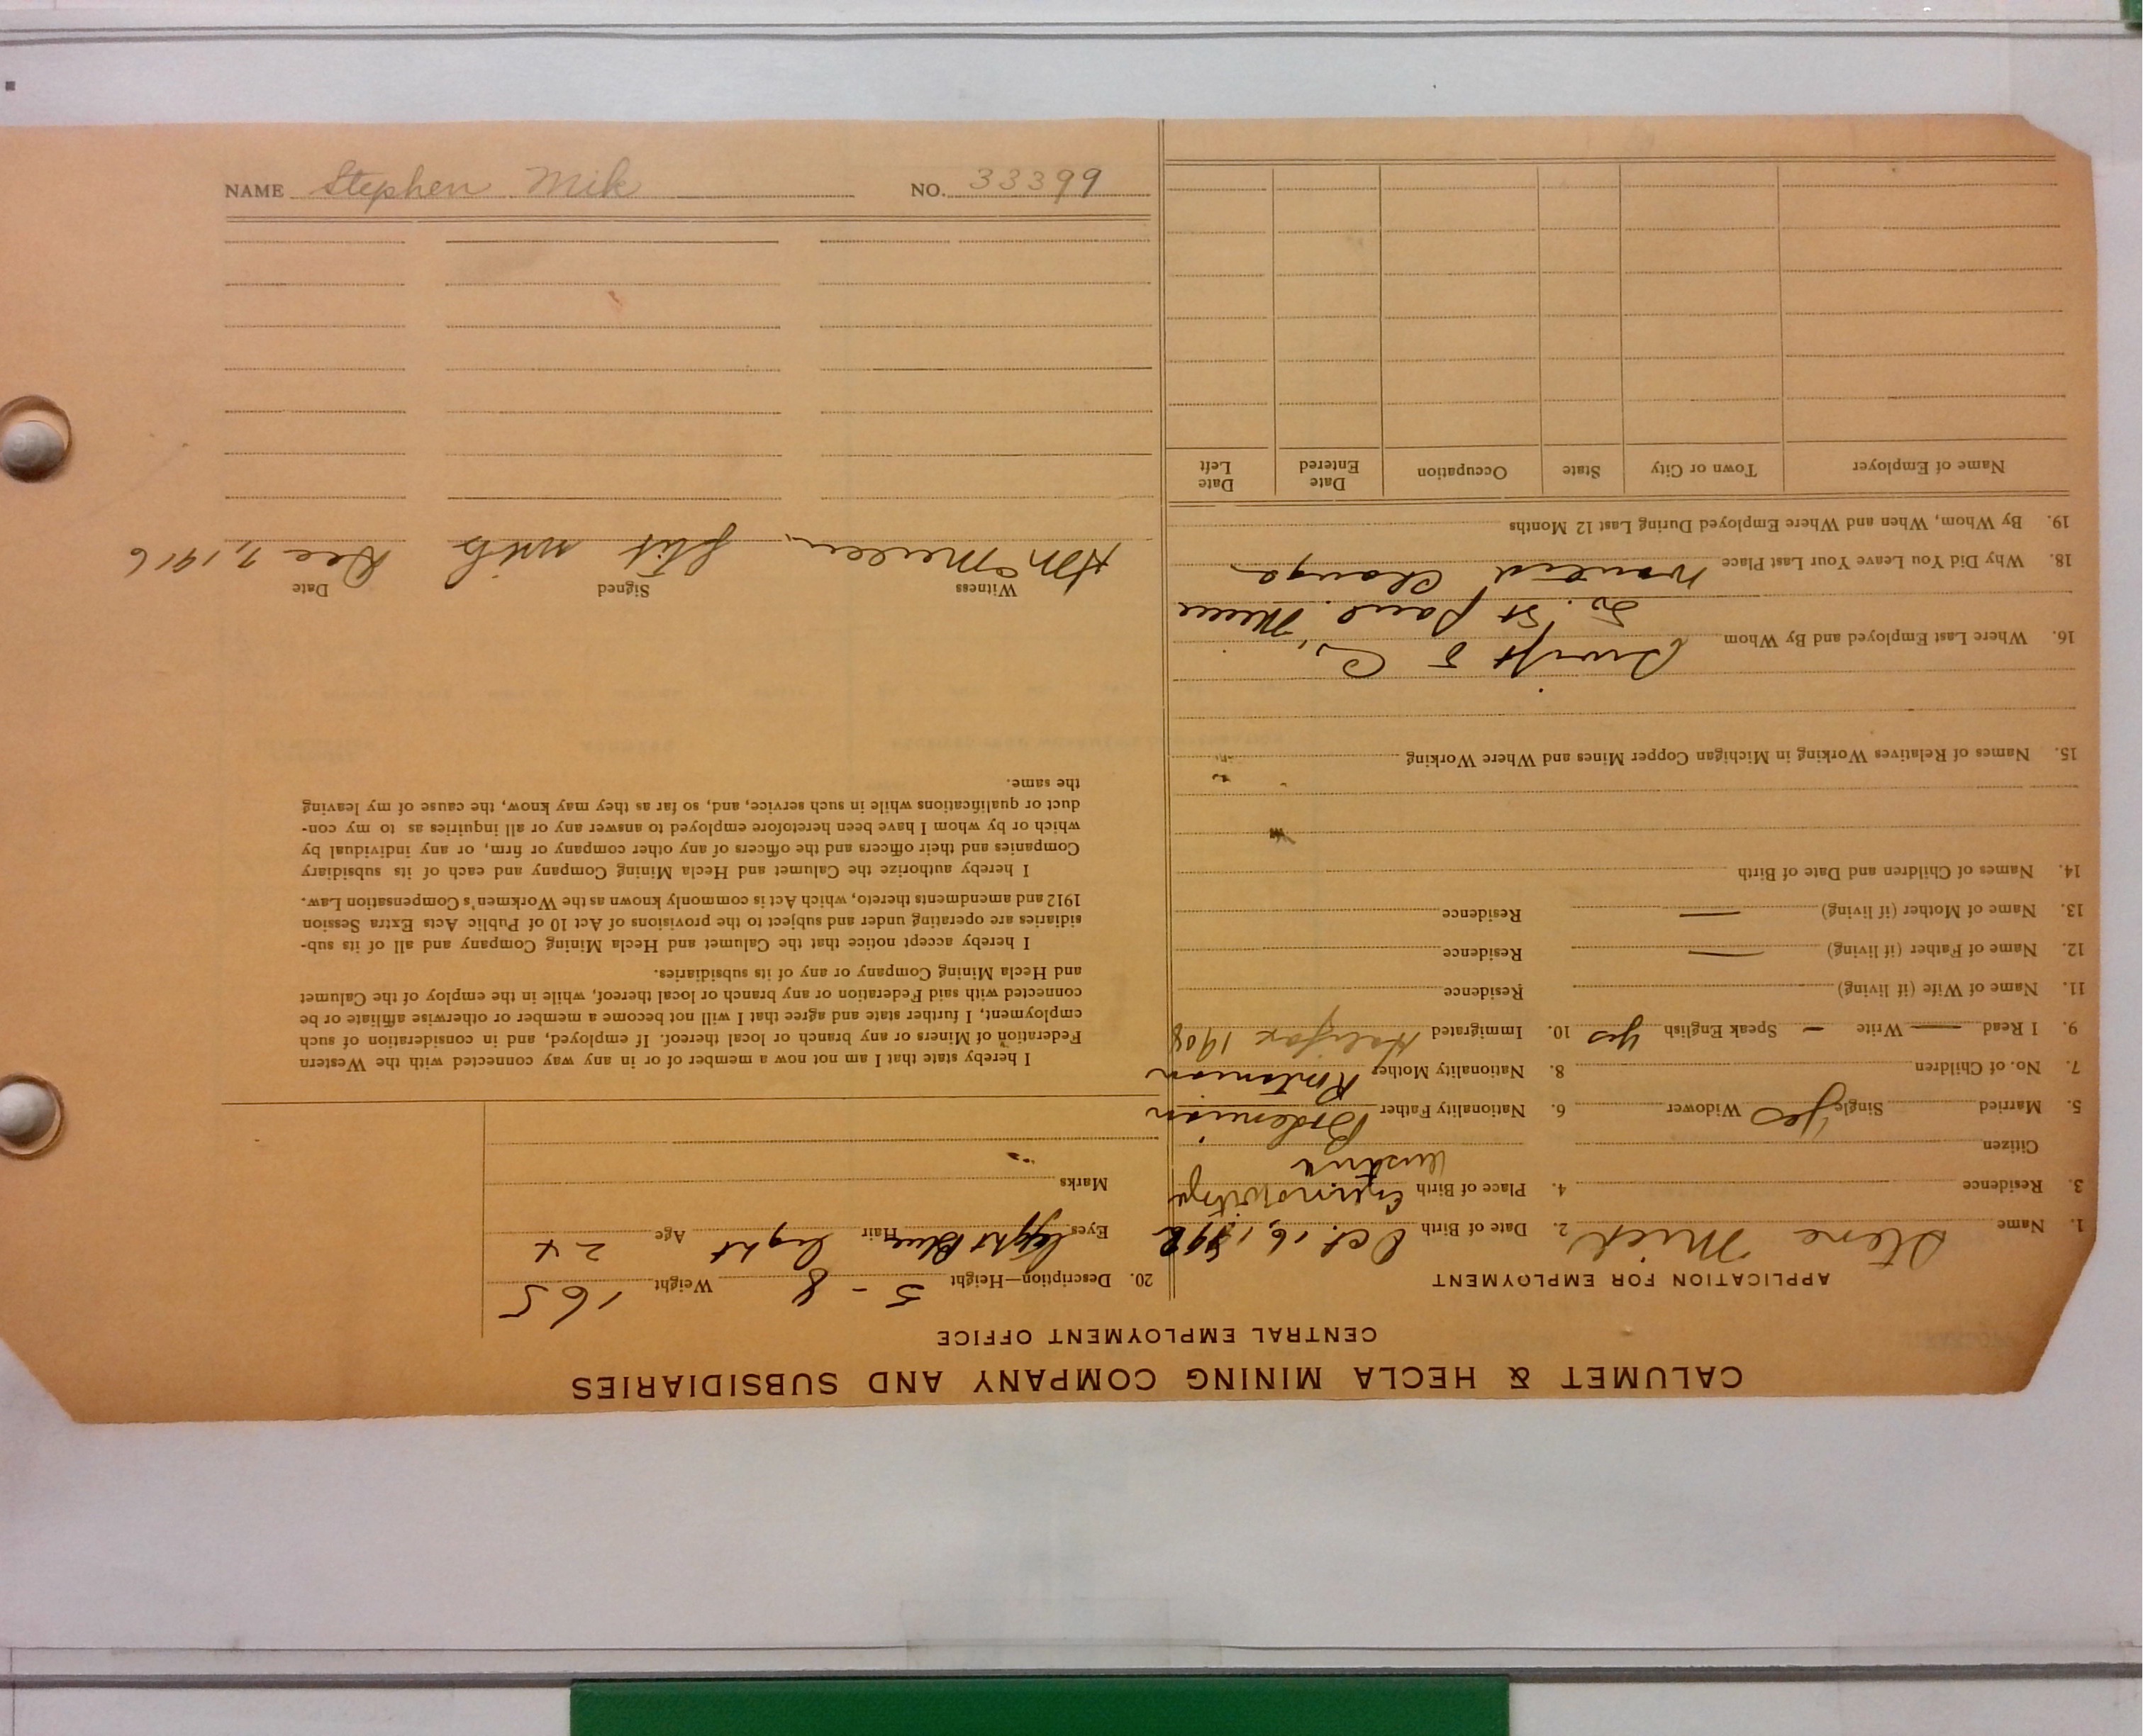 NAME Stephen Mik NO. 33399
CALUMET & HECLA MINING COMPANY AND SUBSIDIARIES
CENTRAL EMPLOYMENT OFFICE
APPLICATION FOR EMPLOYMENT
1. Name Steve Mick 2. Date of Birth Oct. 16, 1892
3. Residence 4. Place of Birth
Austria
Citizen
5. Married Single yes Widower 6. Nationality Father
7. No. of Children 8. Nationality Mother
9. I Read — Write — Speak English yes 10. Immigrated Halifax 1908
11. Name of Wife (if living) Residence
12. Name of Father (if living) — Residence
13. Name of Mother (if living) — Residence
14. Names of Children and Date of Birth
15. Names of Relatives Working in Michigan Copper Mines and Where Working
16. Where Last Employed and By Whom Swift & Co,
So. St Paul. Minn
18. Why Did You Leave Your Last Place Wanted Change
19. By Whom, When and Where Employed During Last 12 Months
Name of Employer Town or City State Occupation Date Entered Date Left
20. Description—Height 5-8 Weight 165
Eyes light Blue Hair light Age 24
Marks
I hereby state that I am not now a member of or in any way connected with the Western
Federation of Miners or any branch or local thereof. If employed, and in consideration of such
employment, I further state and agree that I will not become a member or otherwise affiliate or be
connected with said Federation or any branch or local thereof, while in the employ of the Calumet
and Hecla Mining Company or any of its subsidiaries.
I hereby accept notice that the Calumet and Hecla Mining Company and all of its sub-
sidiaries are operating under and subject to the provisions of Act 10 of Public Acts Extra Session
1912 and amendments thereto, which Act is commonly known as the Workmen's Compensation Law.
I hereby authorize the Calumet and Hecla Mining Company and each of its subsidiary
Companies and their officers and the officers of any other company or firm, or any individual by
which or by whom I have been heretofore employed to answer any or all inquiries as to my con-
duct or qualifications while in such service, and, so far as they may know, the cause of my leaving
the same.
Witness Signed Date
Dec 7, 1916